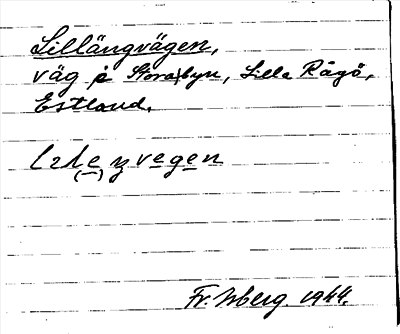 Lillängvägen,
väg på Storabyn, Lilla Rågö,
Estland.
Fr. Isberg. 1944.